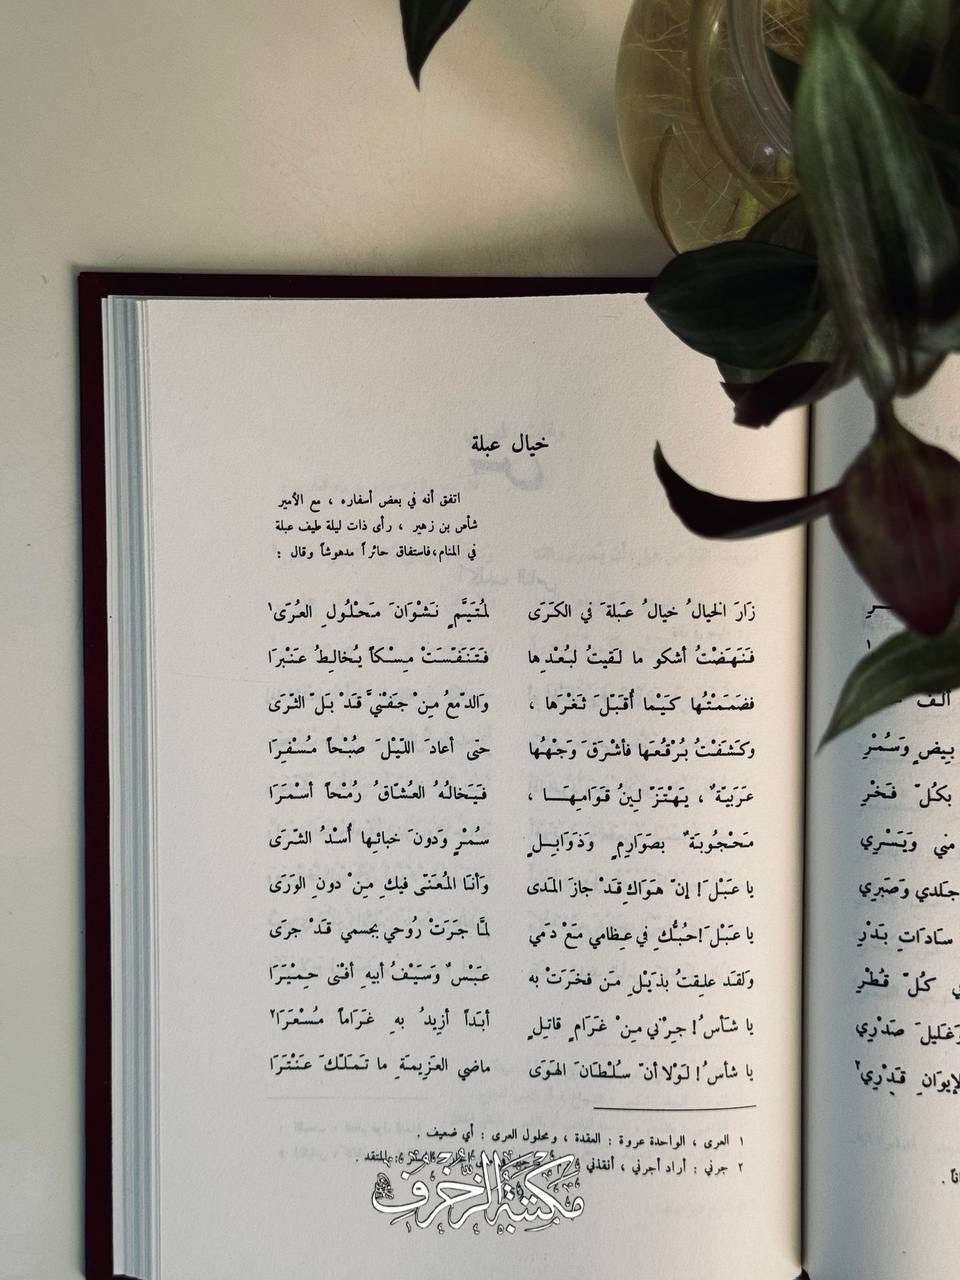 خيال عبلة
اتفق أنه في بعض أسفاره ، مع الأمير
شأس بن زهير ، رأى ذات ليلة طيف عبلة
في المنام،فاستفاق حائراً مدهوشاً وقال :
زَارَ الخيالُ خيالُ عَبلَةَ في الكَرَى لمُتَيَّمٍ نَشْوَانَ مَحْلُولِ العُرَى١
فَنَهَضْتُ أشكو ما لَقيتُ لبُعْدِها فَتَنَفّسَتْ مِسْكاً يُخالِطُ عَنْبَرَا
فضَمَمْتُها كَيْما أُقَبّلَ ثَغْرَها ، وَالدّمْعُ مِنْ جَفْنَيَّ قَدْ بَلّ الثّرَى
وكَشَفْتُ بُرْقُعَها فأشْرَقَ وَجْهُها حتى أعادَ اللّيْلَ صُبْحاً مُسْفِرَا
عَرَبيّةٌ ، يَهْتَزّ لِينُ قَوَامِهَا ، فَيَخالُهُ العُشّاقُ رُمْحاً أسْمَرَا
مَحْجُوبَةٌ بصَوَارِمٍ وَذَوَابِلٍ سُمْرٍ وَدونَ خبائها أُسْدُ الشّرَى
يا عَبْلَ! إنّ هَوَاكِ قَدْ جازَ المَدى وَأنَا المُعَنّى فيكِ مِنْ دونِ الوَرَى
يا عَبْلَ!حُبُّكِ في عِظامي مَعْ دَمي لمَّا جَرَتْ رُوحي بجسمي قَدْ جرَى
وَلقَد علِقتُ بذَيْلِ مَن فخرَتْ به عَبْسٌ وَسَيْفُ أبيهِ أفْنى حِمْيَرَا
يا شأسُ! جِرْني مِنْ غَرَامٍ قاتِلٍ أبَداً أزِيدُ بهِ غَرَاماً مُسْعَرَا٢
يا شأسُ! لَوْلا أنّ سُلْطَانَ الهَوَى ماضي العَزِيمَةِ ما تَمَلّكَ عَنْتَرَا
١ العرى ، الواحدة عروة : العقدة ، ومحلول العرى : أي ضعيف .
٢ جرني : أراد أجرني ، أنقذني المتقد .
مكتبة الزخرف
بِيضٍ وَسُمْرْ
بكُلّ فَخْرِ
مني وَيَسْرِي
جلدي وَصَبري
سادَاتِ بَدْرِ
كُلّ قُطْرِ
وَغَليلَ صَدْرِي
الإيوَانِ قَدْرِي٢